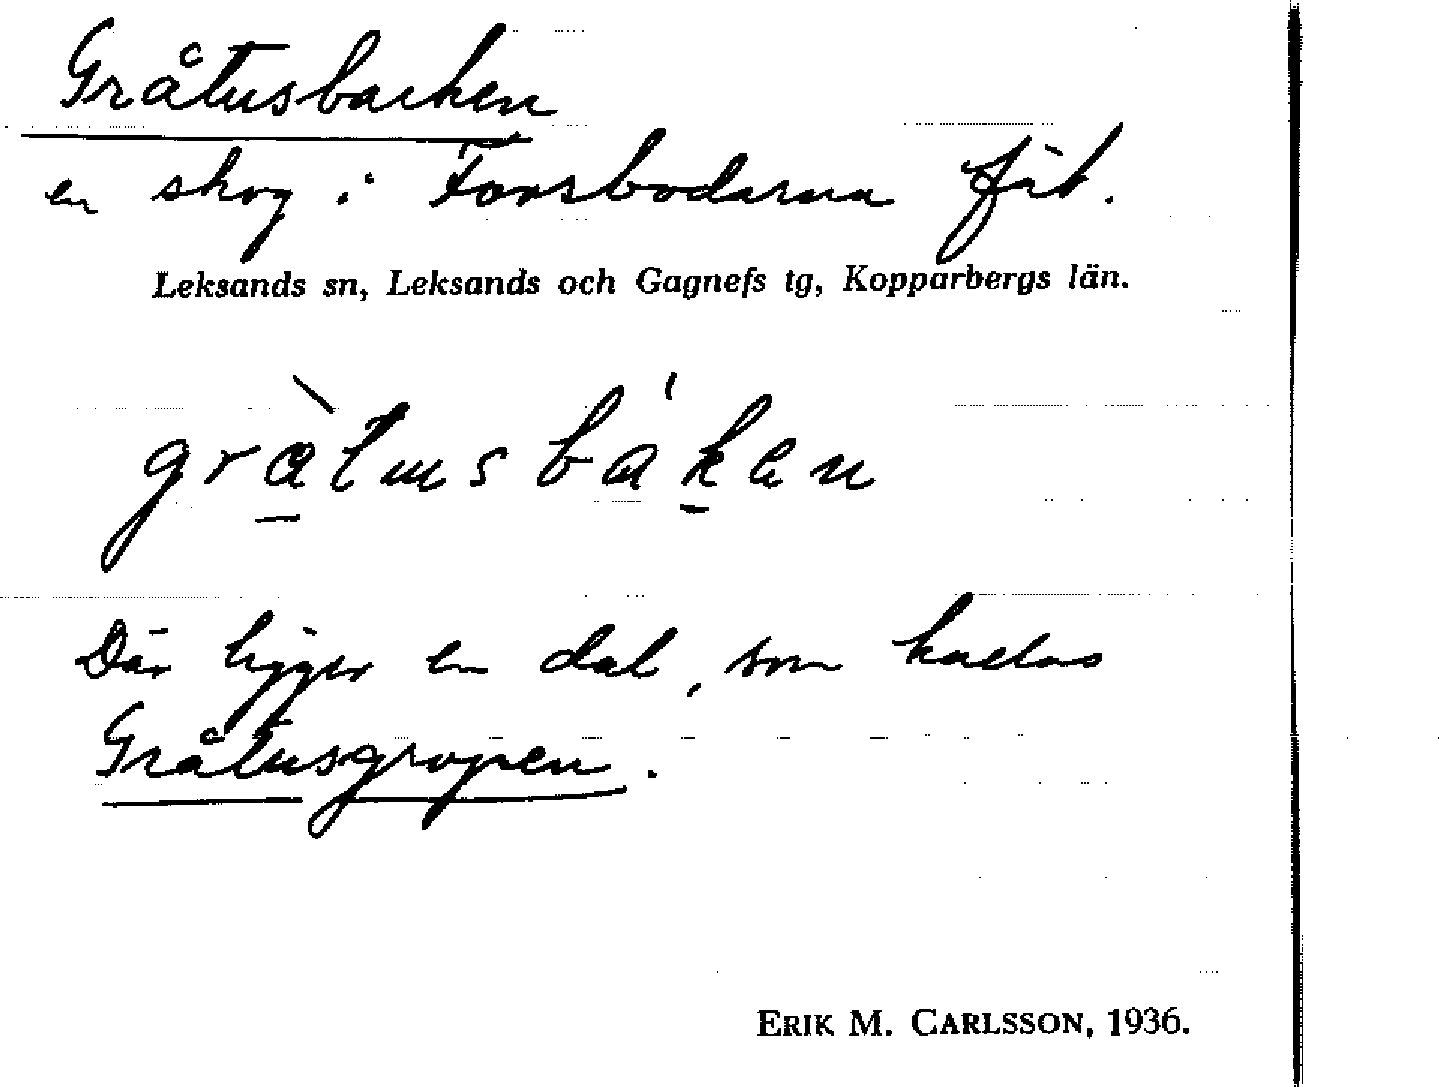 Gråtusbacken
en skog i Forsbodarna fäb.
Leksands sn, Leksands och Gagnefs tg, Kopparbergs län.
gràtusbáken
Där ligger en dal, som kallas
Gråtusgropen.
ERIK M. CARLSSON, 1936.